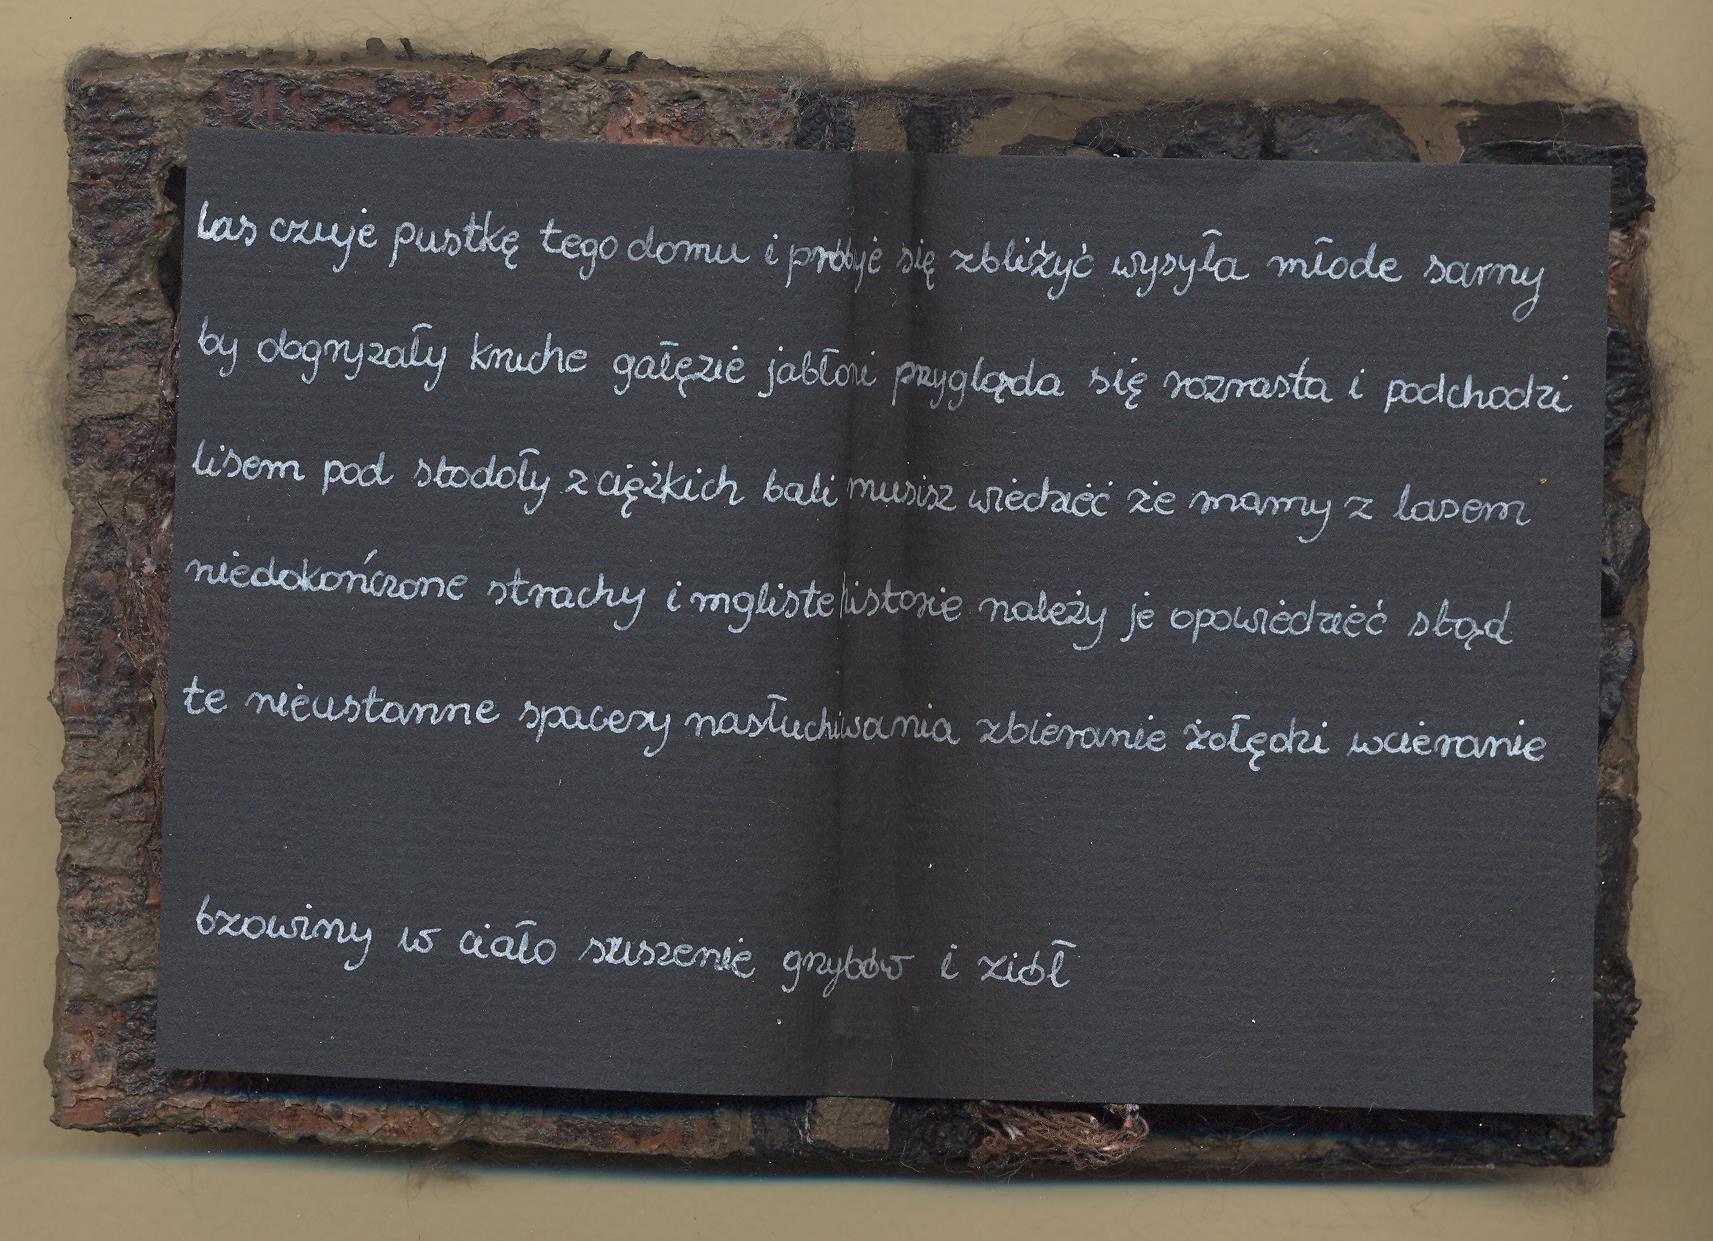 las czuje pustkę tego domu i próbuje się zbliżyć wysyła młode sarny
by obgryzały kruche gałęzie jabłoni przygląda się rozrasta i podchodzi
lisem pod stodoły z ciężkich bali musisz wiedzieć że mamy z lasem
niedokończone strachy i mgliste historie należy je opowiedzieć stąd
te nieustanne spacery nasłuchiwania zbieranie żołędzi wcieranie
bzowiny w ciało suszenie grzybów i ziół